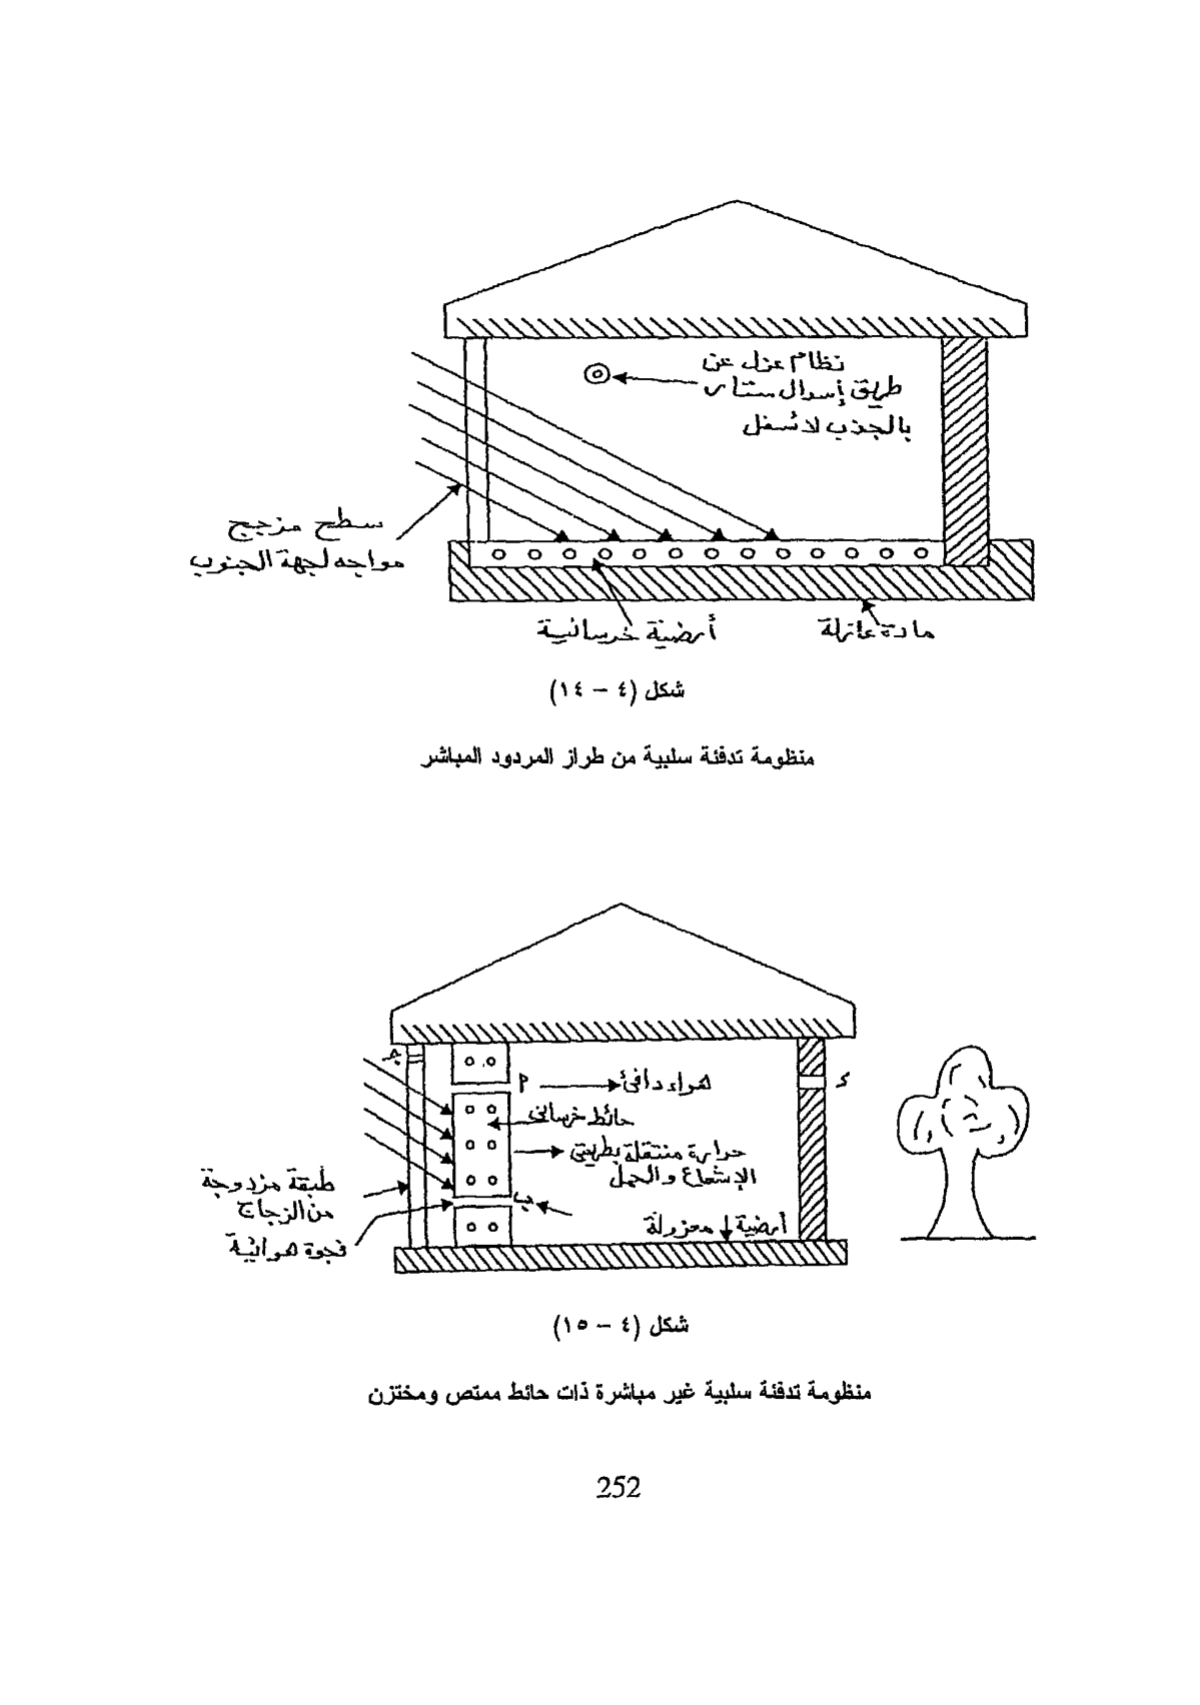 نظام عزل عن
طريق إسدال ستار
بالجذب لأسفل
سطح مزجج
مواجه لجهة الجنوب
أرضية خرسانية
مادة عازلة
شكل (٤ – ١٤)
منظومة تدفئة سلبية من طراز المردود المباشر
جـ
أ
هواء دافئ
د
حائط خرساني
حرارة منتقلة بطريقتي
الإشعاع والحمل
طبقة مزدوجة
من الزجاج
ب
فجوة هوائية
أرضية معزولة
شكل (٤ – ١٥)
منظومة تدفئة سلبية غير مباشرة ذات حائط ممتص ومختزن
252